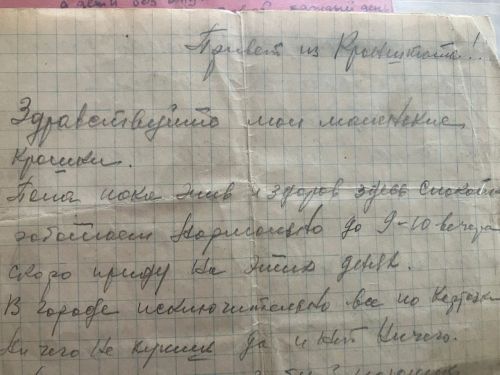 а дети без
каждый день
Привет из Кронштата!!
Здравствуйте мои маленькие
крошки.
Папа пока жив и здоров здесь спокойно
работаем нормально до 9-10 вечера
скоро приду на этих днях.
В городе исключительно все по карточкам
ничего не купишь да и нет ничего.